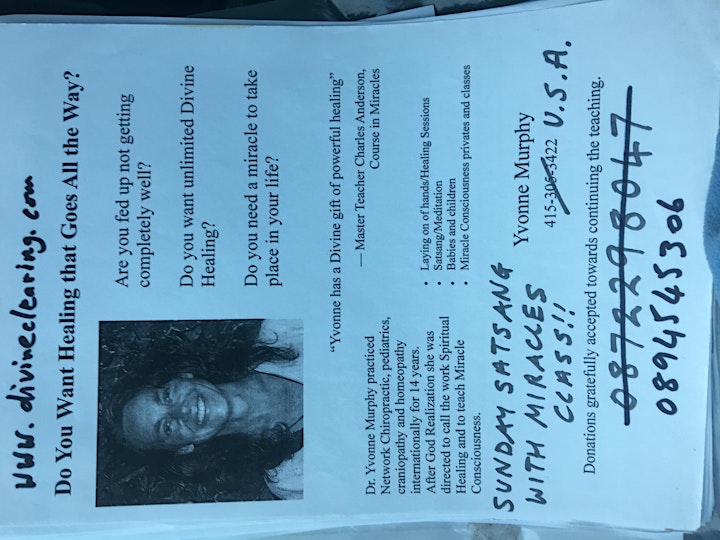 www.divineclearing.com
Do You Want Healing that Goes All the Way?
Are you fed up not getting
completely well?
Do you want unlimited Divine
Healing?
Do you need a miracle to take
place in your life?
"Yvonne has a Divine gift of powerful healing"
— Master Teacher Charles Anderson,
Course in Miracles
Dr. Yvonne Murphy practiced
Network Chiropractic, pediatrics,
craniopathy and homeopathy
internationally for 14 years.
After God Realization she was
directed to call the work Spiritual
Healing and to teach Miracle
Consciousness.
• Laying on of hands/Healing Sessions
• Satsang/Meditation
• Babies and children
• Miracle Consciousness privates and classes
SUNDAY SATSANG
WITH MIRACLES
CLASS!!
Yvonne Murphy
415-306-3422 U.S.A.
Donations gratefully accepted towards continuing the teaching.
0872298047
0894545306